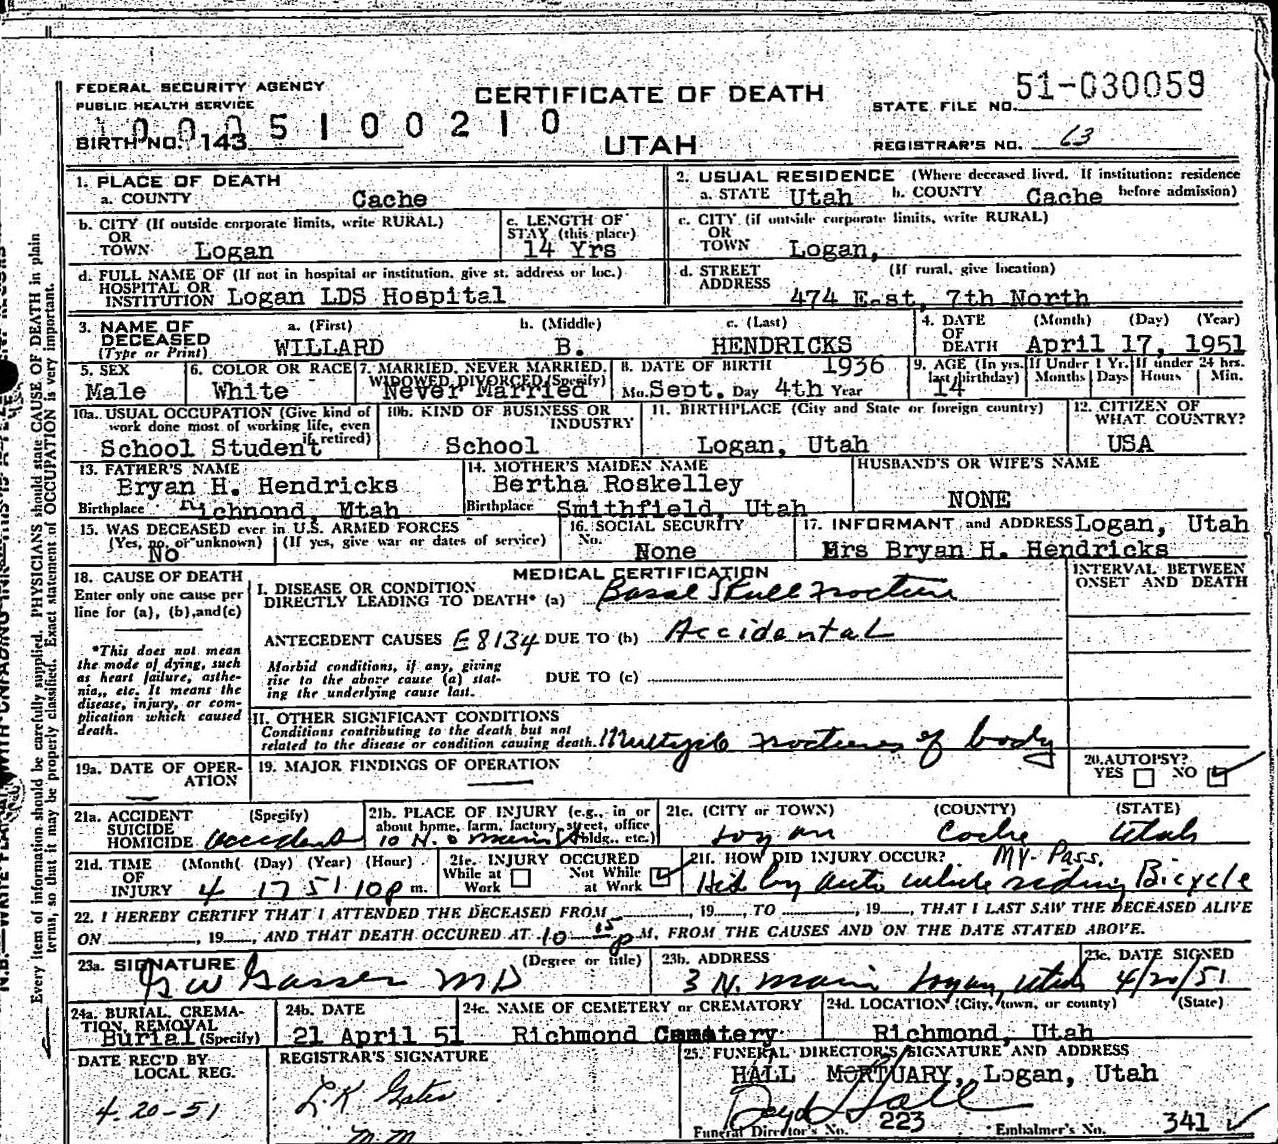 FEDERAL SECURITY AGENCY
PUBLIC HEALTH SERVICE
CERTIFICATE OF DEATH
STATE FILE NO. 51-030059
10005100210
BIRTH NO. 143
UTAH
REGISTRAR'S NO. 63
1. PLACE OF DEATH
a. COUNTY Cache
2. USUAL RESIDENCE (Where deceased lived. If institution: residence before admission)
a. STATE Utah b. COUNTY Cache
b. CITY (If outside corporate limits, write RURAL)
OR
TOWN Logan
c. LENGTH OF
STAY (this place)
14 Yrs
c. CITY (if outside corporate limits, write RURAL)
OR
TOWN Logan,
d. FULL NAME OF (If not in hospital or institution, give st. address or loc.)
HOSPITAL OR
INSTITUTION Logan LDS Hospital
d. STREET (If rural, give location)
ADDRESS
474 East, 7th North
3. NAME OF DECEASED
(Type or Print)
a. (First) b. (Middle) c. (Last)
WILLARD B. HENDRICKS
4. DATE OF DEATH (Month) (Day) (Year)
April 17, 1951
5. SEX
Male
6. COLOR OR RACE
White
7. MARRIED, NEVER MARRIED,
WIDOWED, DIVORCED (Specify)
Never Married
8. DATE OF BIRTH 1936
Mo. Sept. Day 4th Year
9. AGE (In yrs. last birthday) 14
If Under 1 Yr. Months Days
If under 24 hrs. Hours Min.
10a. USUAL OCCUPATION (Give kind of
work done most of working life, even
if retired)
School Student
10b. KIND OF BUSINESS OR
INDUSTRY
School
11. BIRTHPLACE (City and State or foreign country)
Logan, Utah
12. CITIZEN OF
WHAT COUNTRY?
USA
13. FATHER'S NAME
Bryan H. Hendricks
Birthplace Richmond, Utah
14. MOTHER'S MAIDEN NAME
Bertha Roskelley
Birthplace Smithfield, Utah
HUSBAND'S OR WIFE'S NAME
NONE
15. WAS DECEASED ever in U.S. ARMED FORCES
(Yes, no, or unknown) (If yes, give war or dates of service)
No
16. SOCIAL SECURITY
No.
None
17. INFORMANT and ADDRESS Logan, Utah
Mrs Bryan H. Hendricks
18. CAUSE OF DEATH
Enter only one cause per
line for (a), (b), and (c)
*This does not mean
the mode of dying, such
as heart failure, asthe-
nia, etc. It means the
disease, injury, or com-
plication which caused
death.
MEDICAL CERTIFICATION
I. DISEASE OR CONDITION
DIRECTLY LEADING TO DEATH* (a) Basal Skull Fracture
INTERVAL BETWEEN
ONSET AND DEATH
ANTECEDENT CAUSES E8134 DUE TO (b) Accidental
Morbid conditions, if any, giving
rise to the above cause (a) stat-
ing the underlying cause last.
DUE TO (c)
II. OTHER SIGNIFICANT CONDITIONS
Conditions contributing to the death but not
related to the disease or condition causing death. Multiple Fractures of body
19a. DATE OF OPER-
ATION
19. MAJOR FINDINGS OF OPERATION
20. AUTOPSY?
YES NO
21a. ACCIDENT (Specify)
SUICIDE
HOMICIDE accident
21b. PLACE OF INJURY (e.g., in or
about home, farm, factory, street, office
bldg., etc.)
10 N. & Main St
21c. (CITY or TOWN) (COUNTY) (STATE)
Logan Cache Utah
21d. TIME (Month) (Day) (Year) (Hour)
OF
INJURY 4 17 51 10p m.
21e. INJURY OCCURED
While at Work Not While at Work
21f. HOW DID INJURY OCCUR? MV-Pass.
Hit by auto while riding Bicycle
22. I HEREBY CERTIFY THAT I ATTENDED THE DECEASED FROM , 19 , TO , 19 , THAT I LAST SAW THE DECEASED ALIVE
ON , 19 , AND THAT DEATH OCCURED AT 10 15 p M, FROM THE CAUSES AND ON THE DATE STATED ABOVE.
23a. SIGNATURE (Degree or title)
G W Gasser MD
23b. ADDRESS
3 N. Main Logan, Utah
23c. DATE SIGNED
4/20/51
24a. BURIAL, CREMA-
TION, REMOVAL
(Specify) Burial
24b. DATE
21 April 51
24c. NAME OF CEMETERY OR CREMATORY
Richmond Cemetery
24d. LOCATION (City, town, or county) (State)
Richmond, Utah
DATE REC'D BY
LOCAL REG.
4-20-51
REGISTRAR'S SIGNATURE
L.K. Gates
25. FUNERAL DIRECTOR'S SIGNATURE AND ADDRESS
HALL MORTUARY, Logan, Utah
Boyd Hall
Funeral Director's No. 223 Embalmer's No. 341
Every item of information should be carefully supplied. PHYSICIANS should state CAUSE OF DEATH in plain
terms, so that it may be properly classified. Exact statement of OCCUPATION is very important.